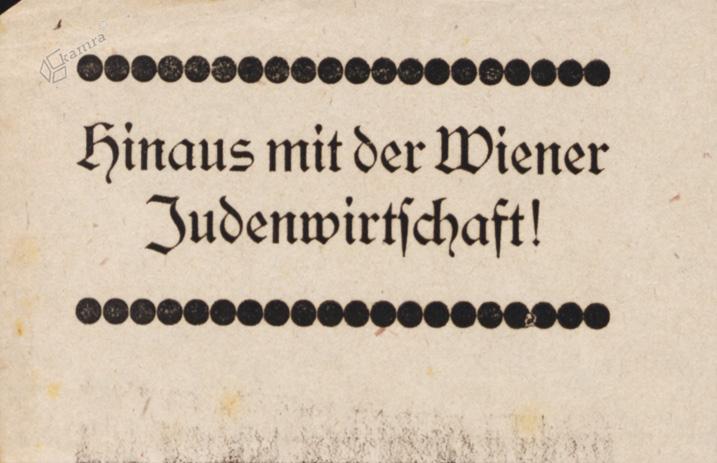 kamra
Hinaus mit der Wiener
Judenwirtschaft!